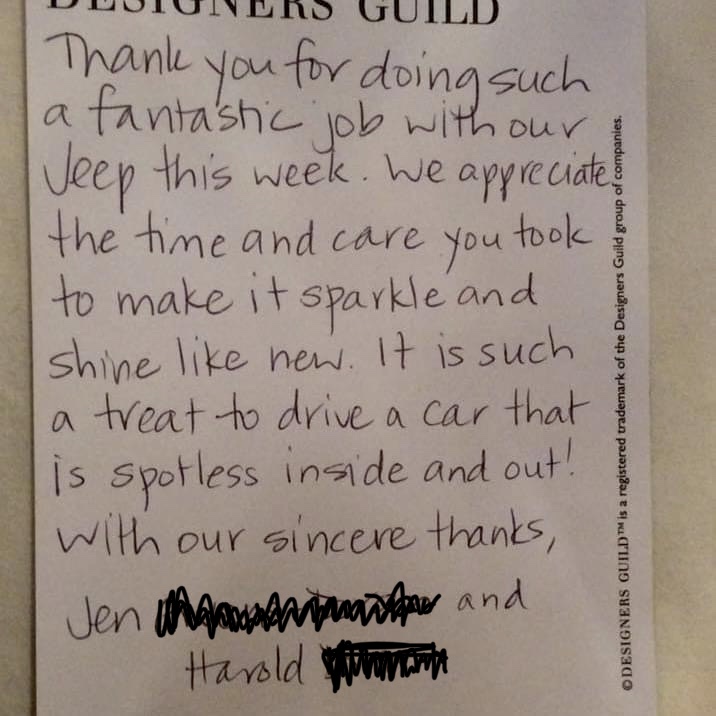 DESIGNERS GUILD
Thank you for doing such
a fantastic job with our
Jeep this week. We appreciate
the time and care you took
to make it sparkle and
shine like new. It is such
a treat to drive a car that
is spotless inside and out!
With our sincere thanks,
Jen and
Harold
© DESIGNERS GUILD™ is a registered trademark of the Designers Guild group of companies.